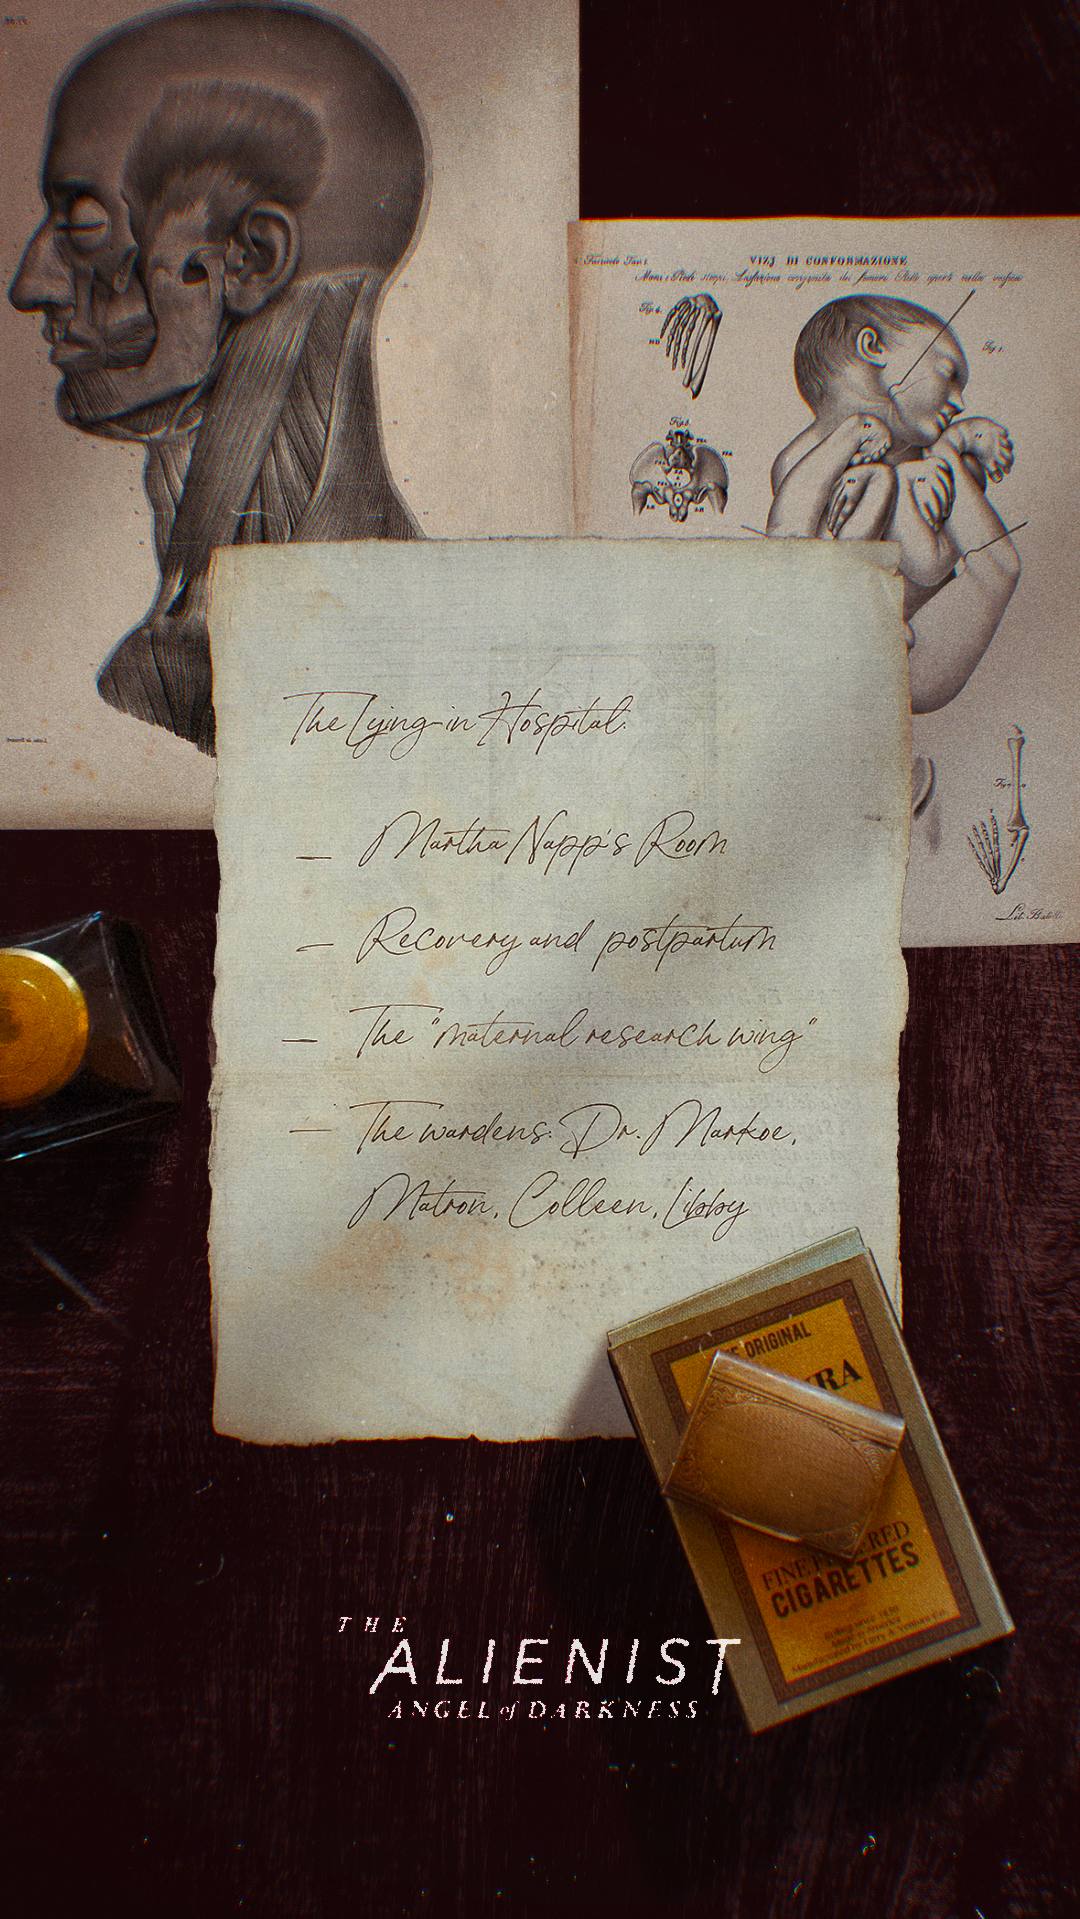 VIZJ DI CONFORMAZIONE
Fig. 4.
Fig. 1.
Fig. 3.
The Lying-in Hospital:
— Martha Napp's Room
— Recovery and postpartum
— The "maternal research wing"
— The wardens: Dr. Markoe,
Matron, Colleen, Libby
Lit. Batelli
ORIGINAL
FINE
CIGARETTES
THE
ALIENIST
ANGEL of DARKNESS